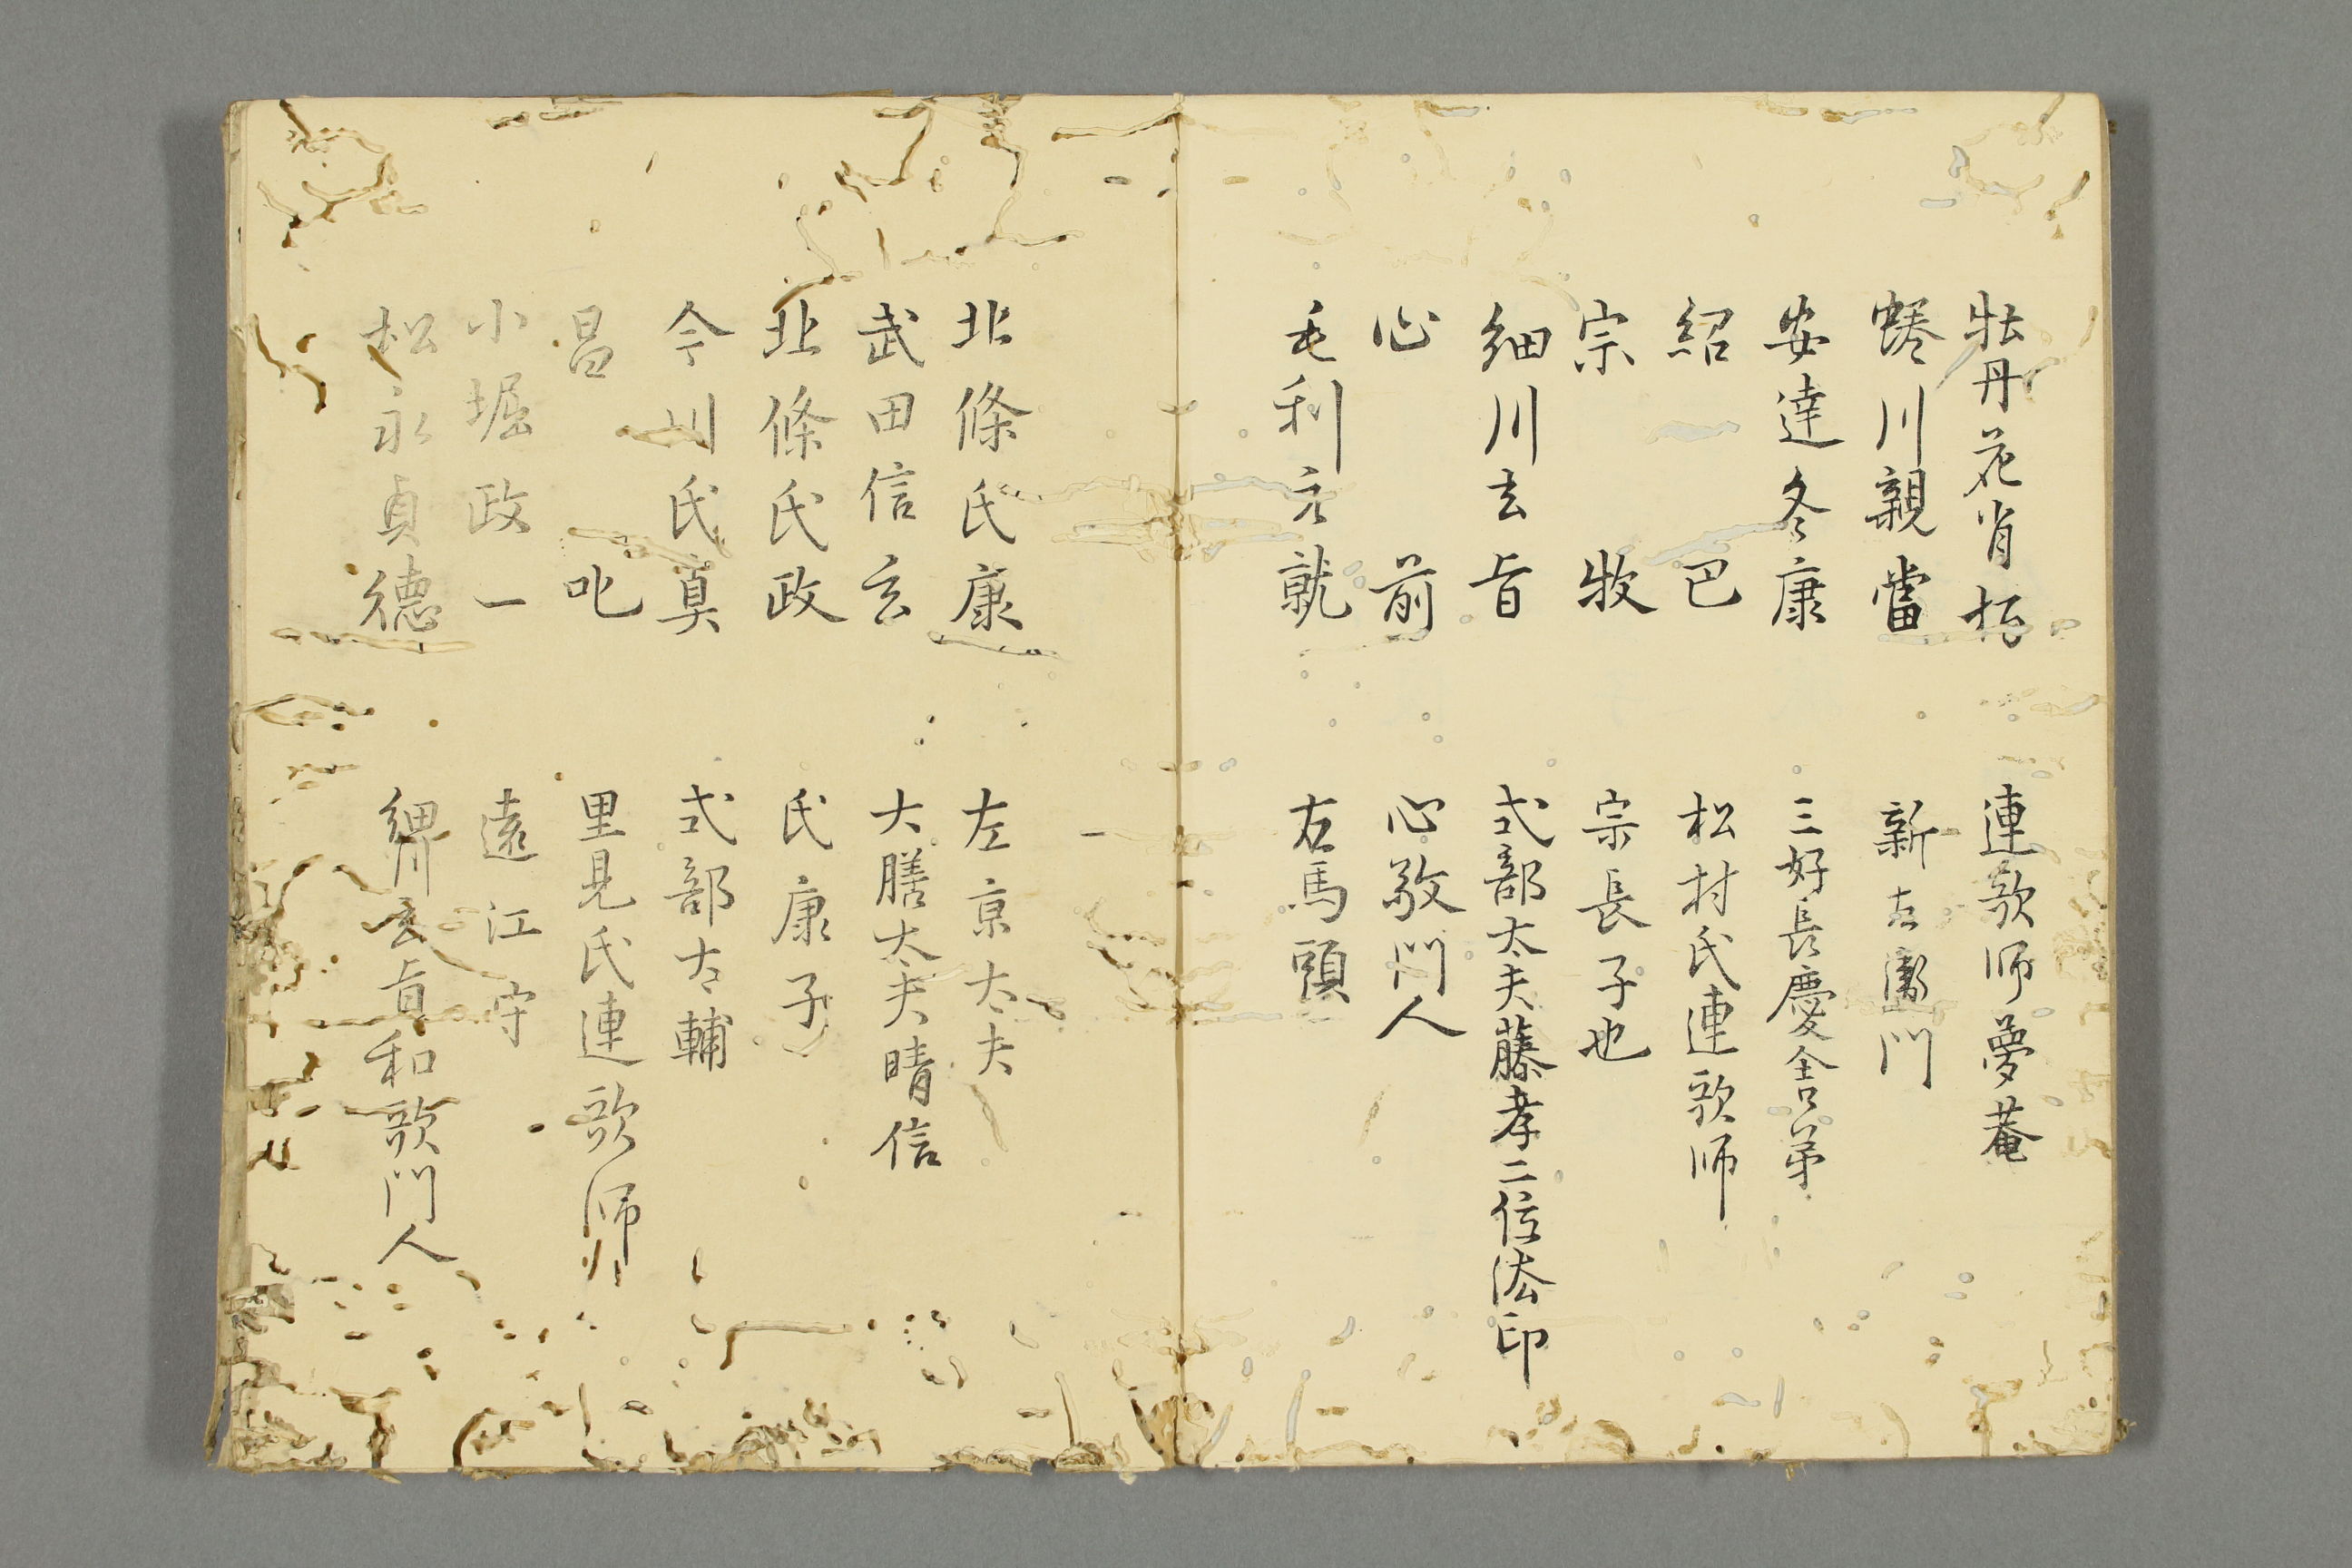 牡丹花肖柏　連歌師夢菴
蜷川親當　新右衛門
安達冬康　三好長慶舎弟
紹巴　松村氏連歌師
宗牧　宗長子也
細川玄旨　式部太夫藤孝二位法印
心前　心敬門人
毛利元就　右馬頭
北條氏康　左京太夫
武田信玄　大膳太夫晴信
北條氏政　氏康子
今川氏真　式部太輔
昌叱　里見氏連歌師
小堀政一　遠江守
松永貞徳　細川玄旨和歌門人